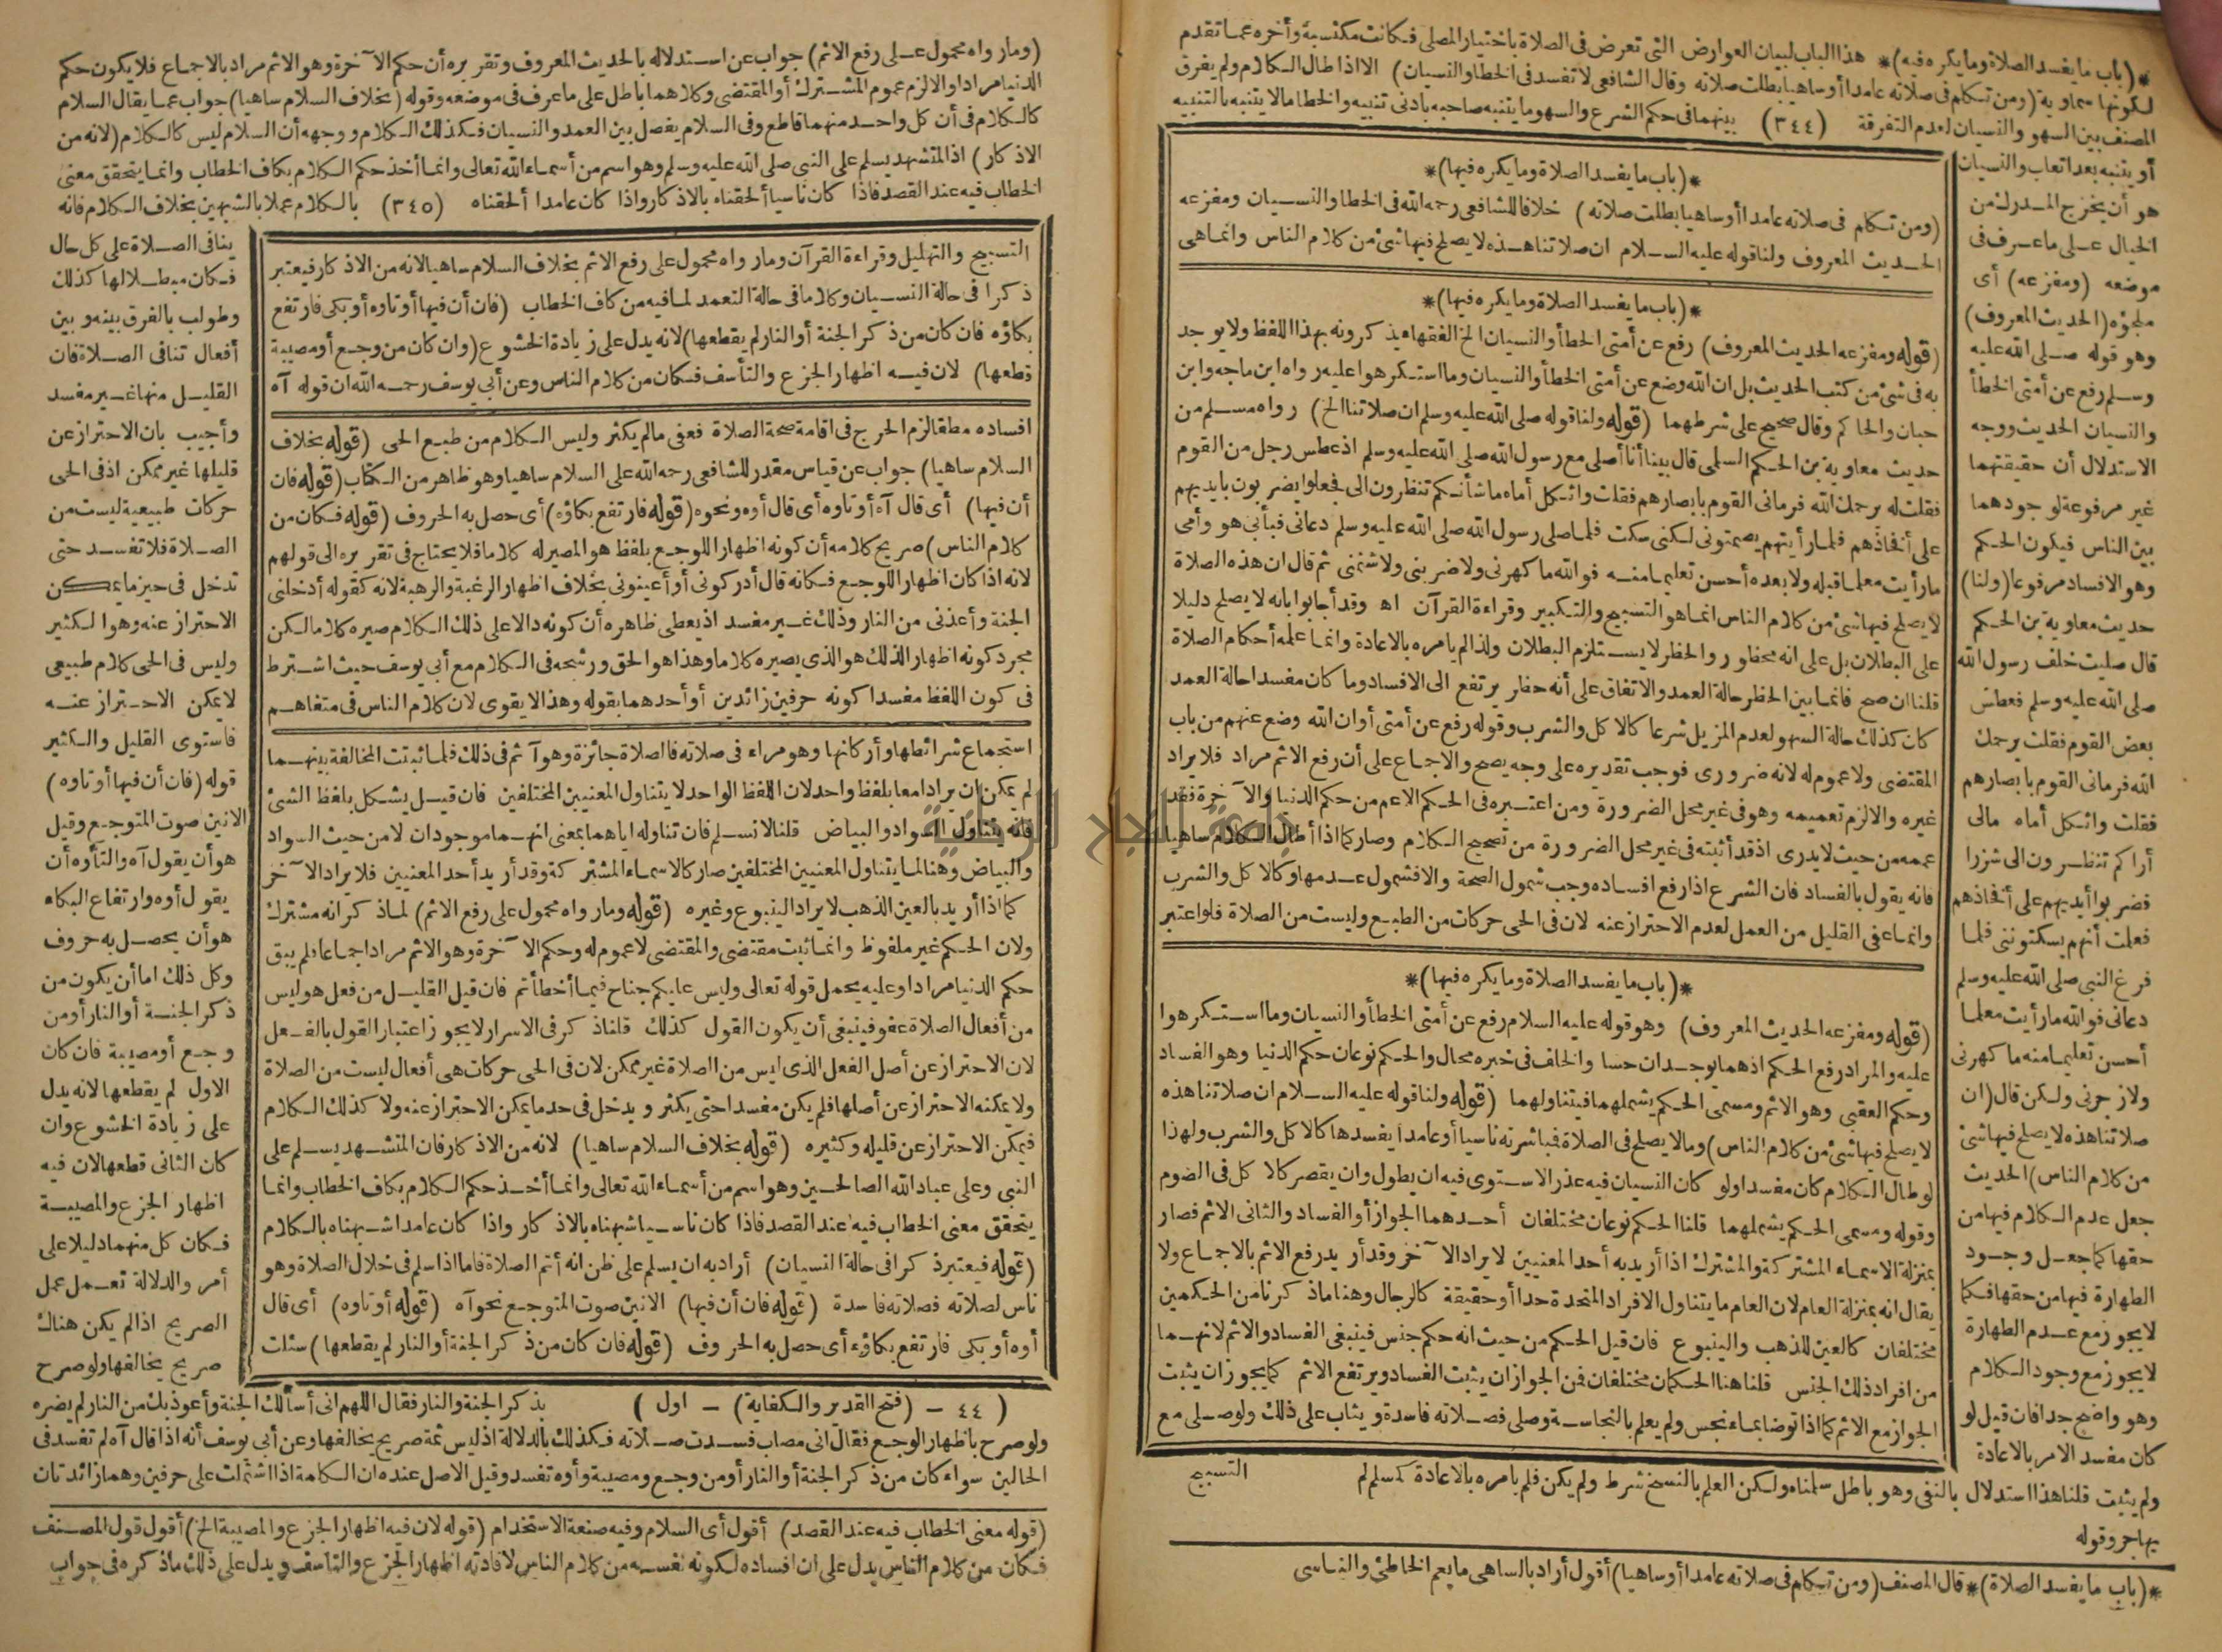 *(باب ما يفسد الصلاة وما يكره فيه)* هذا الباب لبيان العوارض التي تعرض في الصلاة باختيار المصلى فكانت مكتسبة وأخره عما تقدم
لكونها سماوية (ومن تكلم في صلاته عامدا أو ساهيا بطلت صلاته وقال الشافعي لا تفسد في الخطا والنسيان) الا اذا طال الكلام ولم يفرق
المصنف بين السهو والنسيان لعدم التفرقة (٣٤٤) بينهما في حكم الشرع والسهو ما يتنبه صاحبه بأدنى تنبيه والخطا ما لا يتنبه بالتنبيه
أو يتنبه بعد اتعاب والنسيان
هو أن يخرج المدرك من
الخيال على ما عرف في
موضعه (ومفزعه) أى
ملجؤه (الحديث المعروف)
وهو قوله صلى الله عليه
وسلم رفع عن أمتى الخطأ
والنسيان الحديث ووجه
الاستدلال أن حقيقتهما
غير مرفوعة لوجودهما
بين الناس فيكون الحكم
وهو الافساد مرفوعا (ولنا)
حديث معاوية بن الحكم
قال صليت خلف رسول الله
صلى الله عليه وسلم فعطس
بعض القوم فقلت يرحمك
الله فرمانى القوم بابصارهم
فقلت واثكل أماه مالى
أراكم تنظرون الى شزرا
فضربوا أيديهم على أفخاذهم
فعلمت أنهم يسكتوننى فلما
فرغ النبى صلى الله عليه وسلم
دعانى فوالله ما رأيت معلما
أحسن تعليما منه ما كهرنى
ولا زجرنى ولكن قال (ان
صلاتنا هذه لا يصلح فيها شئ
من كلام الناس) الحديث
جعل عدم الكلام فيها من
حقها كما جعل وجود
الطهارة فيها من حقها فكما
لا يجوز مع عدم الطهارة
لا يجوز مع وجود الكلام
وهو واضح جدا فان قيل لو
كان مفسد الامر بالاعادة
ولم يثبت قلنا هذا استدلال بالنفى وهو باطل سلمناه ولكن العلم بالنسخ شرط ولم يكن فلم يامره بالاعادة كمسلم لم
يهاجر وقوله
*(باب ما يفسد الصلاة وما يكره فيها)*
(ومن تكلم فى صلاته عامدا أو ساهيا بطلت صلاته) خلافا للشافعى رحمه الله فى الخطا والنسيان ومفزعه
الحديث المعروف ولنا قوله عليه السلام ان صلاتنا هذه لا يصلح فيها شئ من كلام الناس وانما هى
*(باب ما يفسد الصلاة وما يكره فيها)*
(قوله ومفزعه الحديث المعروف) رفع عن أمتى الخطأ والنسيان الخ الفقهاء يذكرونه بهذا اللفظ ولا يوجد
به فى شئ من كتب الحديث بل ان الله وضع عن أمتى الخطأ والنسيان وما استكرهوا عليه رواه ابن ماجه وابن
حبان والحاكم وقال صحيح على شرطهما (قوله ولنا قوله صلى الله عليه وسلم ان صلاتنا الخ) رواه مسلم من
حديث معاوية بن الحكم السلمى قال بينا أنا أصلى مع رسول الله صلى الله عليه وسلم اذ عطس رجل من القوم
فقلت له يرحمك الله فرمانى القوم بابصارهم فقلت واثكل أماه ما شأنكم تنظرون الى فجعلوا يضربون بايديهم
على أفخاذهم فلما رأيتهم يصمتونى لكنى سكت فلما صلى رسول الله صلى الله عليه وسلم دعانى فبأبى هو وأمى
ما رأيت معلما قبله ولا بعده أحسن تعليما منه فوالله ما كهرنى ولا ضربنى ولا شتمنى ثم قال ان هذه الصلاة
لا يصلح فيها شئ من كلام الناس انما هو التسبيح والتكبير وقراءة القرآن اه وقد أجابوا بانه لا يصلح دليلا
على البطلان بل على انه محظور والحظر لا يستلزم البطلان ولذا لم يامره بالاعادة وانما علمه أحكام الصلاة
قلنا ان صح فانما بين الحظر حالة العمد والاتفاق على أنه حظر يرتفع الى الافساد وما كان مفسدا حالة العمد
كان كذلك حالة السهو لعدم المزيل شرعا كالاكل والشرب وقوله رفع عن أمتى أو ان الله وضع عنهم من باب
المقتضى ولا عموم له لانه ضرورى فوجب تقديره على وجه يصح والاجماع على أن رفع الاثم مراد فلا يراد
غيره والا لزم تعميمه وهو فى غير محل الضرورة ومن اعتبره فى الحكم الاعم من حكم الدنيا والآخرة فقد
عممه من حيث لا يدرى اذ قد أثبته فى غير محل الضرورة من تصحيح الكلام وصار كما اذا أطال الكلام ساهيا
فانه يقول بالفساد فان الشرع اذا رفع افساده وجب شمول الصحة والا فشمول عدمها وكالاكل والشرب
وانما عفى القليل من العمل لعدم الاحتراز عنه لان فى الحى حركات من الطبع وليست من الصلاة فلو اعتبر
*(باب ما يفسد الصلاة وما يكره فيها)*
(قوله ومفزعه الحديث المعروف) وهو قوله عليه السلام رفع عن أمتى الخطأ والنسيان وما استكرهوا
عليه والمراد رفع الحكم اذ هما يوجدان حسا والخلف فى خبره محال والحكم نوعان حكم الدنيا وهو الفساد
وحكم العقبى وهو الاثم ومسمى الحكم يشملهما فيتناولهما (قوله ولنا قوله عليه السلام ان صلاتنا هذه
لا يصلح فيها شئ من كلام الناس) وما لا يصلح فى الصلاة فباشرته ناسيا أو عامدا يفسدها كالاكل والشرب ولهذا
لو طال الكلام كان مفسدا ولو كان النسيان فيه عذرا لاستوى فيه ان يطول وان يقصر كالاكل فى الصوم
وقوله ومسمى الحكم يشملهما قلنا الحكم نوعان مختلفان أحدهما الجواز أو الفساد والثانى الاثم فصار
بمنزلة الاسماء المشتركة والمشترك اذا أريد به أحد المعنيين لا يراد الآخر وقد أريد رفع الاثم بالاجماع ولا
يقال انه بمنزلة العام لان العام ما يتناول الافراد المتحدة حدا أو حقيقة كالرجال وهنا ما ذكرنا من الحكمين
مختلفان كالعين للذهب والينبوع فان قيل الحكم من حيث انه حكم جنس فينبغى الفساد والاثم لانهما
من افراد ذلك الجنس قلنا هنا الحكمان مختلفان فمن الجواز ان يثبت الفساد ويرتفع الاثم كما يجوز ان يثبت
الجواز مع الاثم كما اذا توضا بماء نجس ولم يعلم بالنجاسة وصلى فصلاته فاسدة ويثاب على ذلك ولو صلى مع
التسبيح
*(باب ما يفسد الصلاة)* قال المصنف (ومن تكلم فى صلاته عامدا أو ساهيا) أقول أراد بالساهى ما يعم الخاطئ والناسى
(وما رواه محمول على رفع الاثم) جواب عن استدلاله بالحديث المعروف وتقريره أن حكم الآخرة وهو الاثم مراد بالاجماع فلا يكون حكم
الدنيا مرادا والا لزم عموم المشترك أو المقتضى وكلاهما باطل على ما عرف فى موضعه وقوله (بخلاف السلام ساهيا) جواب عما يقال السلام
كالكلام فى أن كل واحد منهما قاطع وفى السلام يفصل بين العمد والنسيان فكذلك الكلام ووجهه أن السلام ليس كالكلام (لانه من
الاذكار) اذ المتشهد يسلم على النبى صلى الله عليه وسلم وهو اسم من أسماء الله تعالى وانما أخذ حكم الكلام بكاف الخطاب وانما يتحقق معنى
الخطاب فيه عند القصد فاذا كان ناسيا ألحقناه بالاذكار واذا كان عامدا ألحقناه (٣٤٥) بالكلام عملا بالشبهين بخلاف الكلام فانه
ينافى الصلاة على كل حال
فكان مبطلا لها كذلك
وطولب بالفرق بينه وبين
أفعال تنافى الصلاة فان
القليل منها غير مفسد
وأجيب بان الاحتراز عن
قليلها غير ممكن اذ فى الحى
حركات طبيعية ليست من
الصلاة فلا تفسد حتى
تدخل فى حيز ما يمكن
الاحتراز عنه وهو الكثير
وليس فى الحى كلام طبيعى
لا يمكن الاحتراز عنه
فاستوى القليل والكثير
قوله (فان أن فيها أو تاوه)
الانين صوت المتوجع وقيل
هو أن يقول آه والتأوه أن
يقول أوه وارتفاع البكاء
هو أن يحصل به حروف
وكل ذلك اما أن يكون من
ذكر الجنة أو النار أو من
وجع أو مصيبة فان كان
الاول لم يقطعها لانه يدل
على زيادة الخشوع وان
كان الثانى قطعها لان فيه
اظهار الجزع والمصيبة
فكان كل منهما دليلا على
أمر والدلالة تعمل عمل
الصريح اذا لم يكن هناك
صريح يخالفها ولو صرح
بذكر الجنة والنار فقال اللهم انى أسألك الجنة وأعوذ بك من النار لم يضره
ولو صرح باظهار الوجع فقال انى مصاب فسدت صلاته فكذلك بالدلالة اذ ليس ثمة صريح يخالفها وعن أبى يوسف أنه اذا قال آه لم تفسد فى
الحالين سواء كان من ذكر الجنة أو النار أو من وجع ومصيبة وأوه تفسد وقيل الاصل عنده ان الكلمة اذا اشتملت على حرفين وهما زائدتان
التسبيح والتهليل وقراءة القرآن وما رواه محمول على رفع الاثم بخلاف السلام ساهيا لانه من الاذكار فيعتبر
ذكرا فى حالة النسيان وكلاما فى حالة التعمد لما فيه من كاف الخطاب (فان أن فيها أو تاوه أو بكى فارتفع
بكاؤه فان كان من ذكر الجنة أو النار لم يقطعها) لانه يدل على زيادة الخشوع (وان كان من وجع أو مصيبة
قطعها) لان فيه اظهار الجزع والتأسف فكان من كلام الناس وعن أبى يوسف رحمه الله ان قوله آه
افساده مطلقا لزم الحرج فى اقامة صحة الصلاة فعفى ما لم يكثر وليس الكلام من طبع الحى (قوله بخلاف
السلام ساهيا) جواب عن قياس مقدر للشافعى رحمه الله على السلام ساهيا وهو ظاهر من الكتاب (قوله فان
أن فيها) أى قال آه أو تاوه أى قال أوه ونحوه (قوله فارتفع بكاؤه) أى حصل به الحروف (قوله فكان من
كلام الناس) صريح كلامه أن كونه اظهارا للوجع بلفظ هو المصير له كلاما فلا يحتاج فى تقريره الى قولهم
لانه اذا كان اظهارا للوجع فكانه قال أدركونى أو أعينونى بخلاف اظهار الرغبة والرهبة لانه كقوله أدخلنى
الجنة وأعذنى من النار وذلك غير مفسد اذ يعطى ظاهره أن كونه دالا على ذلك الكلام صيره كلاما لكن
مجرد كونه اظهارا لذلك هو الذى يصيره كلاما وهذا هو الحق ورشحه فى الكلام مع أبى يوسف حيث اشترط
فى كون اللفظ مفسدا كونه حرفين زائدين أو أحدهما بقوله وهذا لا يقوى لان كلام الناس فى متفاهم
استجماع شرائطها وأركانها وهو مراء فى صلاته فالصلاة جائزة وهو آثم فى ذلك فلما ثبتت المخالفة بينهما
لم يمكن ان يرادا معا بلفظ واحد لان اللفظ الواحد لا يتناول المعنيين المختلفين فان قيل يشكل بلفظ الشئ
فانه يتناول السواد والبياض قلنا لا نسلم فان تناوله اياهما بمعنى انهما موجودان لا من حيث السواد
والبياض وهنا لما يتناول المعنيين المختلفين صار كالاسماء المشتركة وقد أريد أحد المعنيين فلا يراد الآخر
كما اذا أريد بالعين الذهب لا يراد الينبوع وغيره (قوله وما رواه محمول على رفع الاثم) لما ذكر انه مشترك
ولان الحكم غير ملفوظ وانما ثبت مقتضى والمقتضى لا عموم له وحكم الآخرة وهو الاثم مراد اجماعا فلم يبق
حكم الدنيا مرادا وعليه يحمل قوله تعالى وليس عليكم جناح فيما أخطأتم فان قيل القليل من فعل هو ليس
من أفعال الصلاة عفو فينبغى أن يكون القول كذلك قلنا ذكر فى الاسرار لا يجوز اعتبار القول بالفعل
لان الاحتراز عن أصل الفعل الذى ليس من الصلاة غير ممكن لان فى الحى حركات هى أفعال ليست من الصلاة
ولا يمكنه الاحتراز عن أصلها فلم يكن مفسدا حتى يكثر ويدخل فى حد ما يمكن الاحتراز عنه ولا كذلك الكلام
فيمكن الاحتراز عن قليله وكثيره (قوله بخلاف السلام ساهيا) لانه من الاذكار فان المتشهد يسلم على
النبى وعلى عباد الله الصالحين وهو اسم من أسماء الله تعالى وانما أخذ حكم الكلام بكاف الخطاب وانما
يتحقق معنى الخطاب فيه عند القصد فاذا كان ناسيا شبهناه بالاذكار واذا كان عامدا شبهناه بالكلام
(قوله فيعتبر ذكرا فى حالة النسيان) أراد به ان يسلم على ظن انه أتم الصلاة فاما اذا سلم فى خلال الصلاة وهو
ناس لصلاته فصلاته فاسدة (قوله فان أن فيها) الانين صوت المتوجع نحو آه (قوله أو تاوه) أى قال
أوه أو بكى فارتفع بكاؤه أى حصل به الحروف (قوله فان كان من ذكر الجنة أو النار لم يقطعها) سئلت
( ٤٤ - (فتح القدير والكفاية) - اول )
(قوله معنى الخطاب فيه عند القصد) أقول أى السلام وفيه صنعة الاستخدام (قوله لان فيه اظهار الجزع والمصيبة الخ) أقول قول المصنف
فكان من كلام الناس يدل على ان افساده لكونه نفسه من كلام الناس لافادته اظهار الجزع والتاسف ويدل على ذلك ما ذكره فى جواب